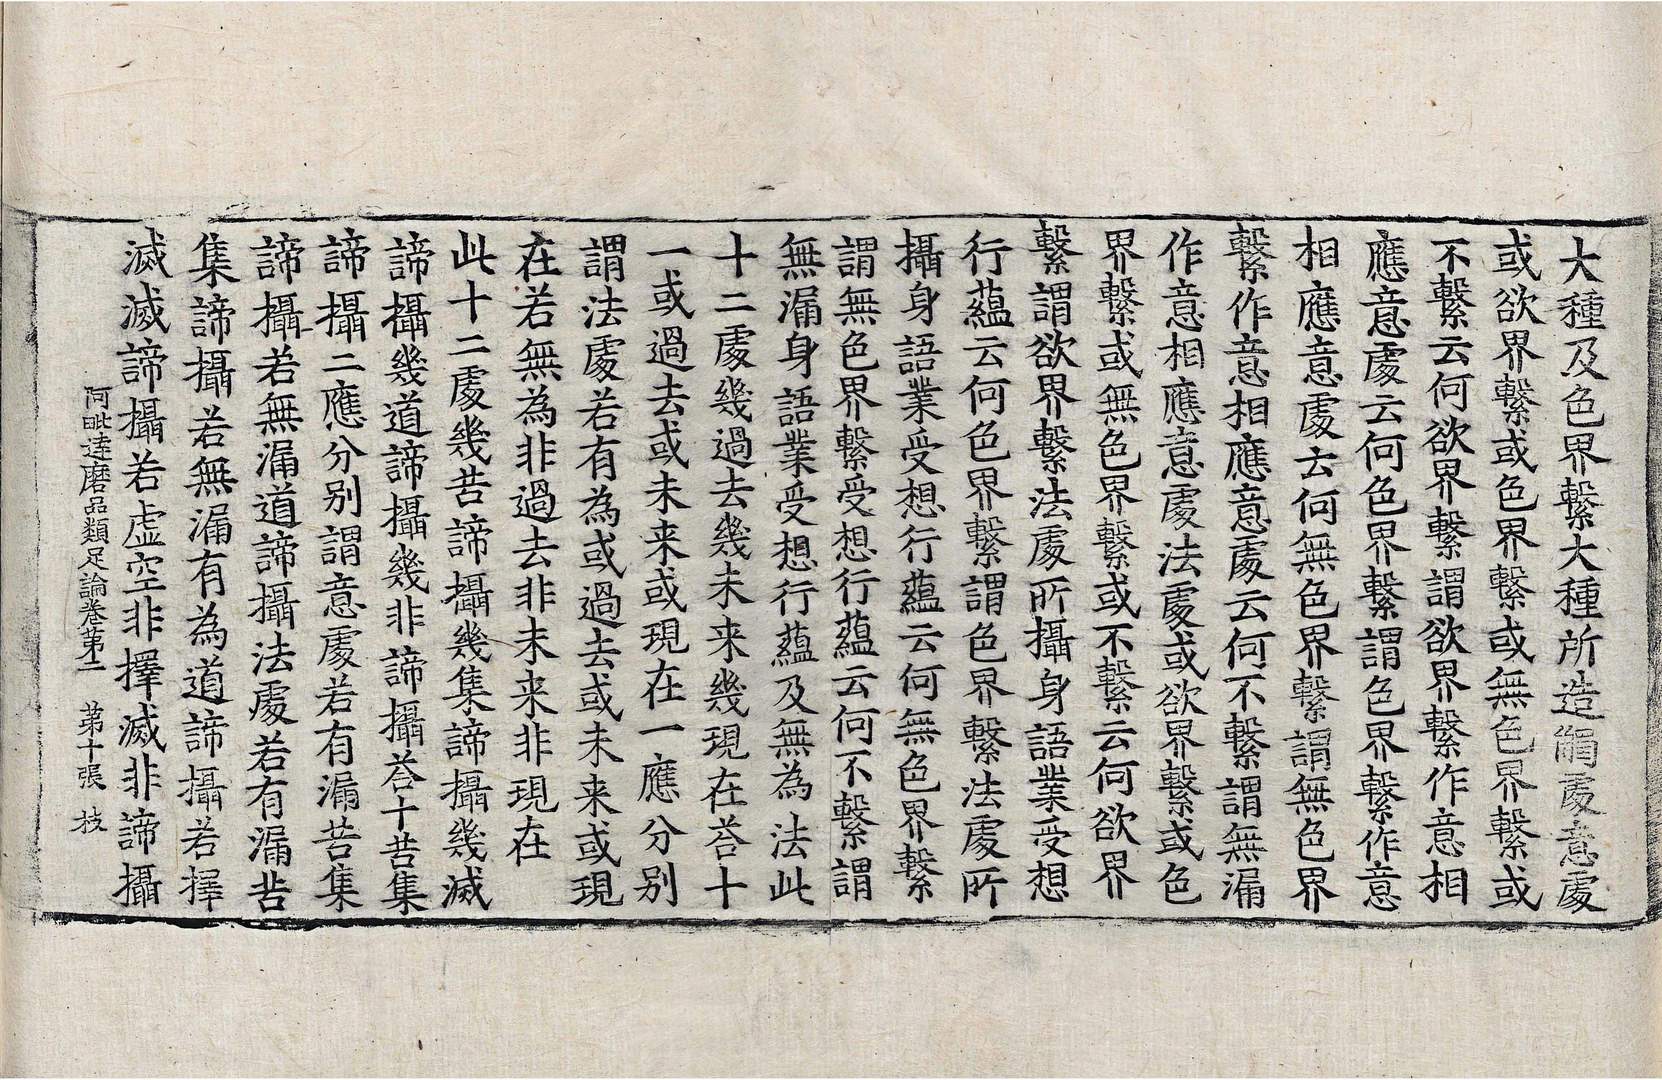 大種及色界繫大種所造觸處意處
或欲界繫或色界繫或無色界繫或
不繫云何欲界繫謂欲界繫作意相
應意處云何色界繫謂色界繫作意
相應意處云何無色界繫謂無色界
繫作意相應意處云何不繫謂無漏
作意相應意處法處或欲界繫或色
界繫或無色界繫或不繫云何欲界
繫謂欲界繫法處所攝身語業受想
行蘊云何色界繫謂色界繫法處所
攝身語業受想行蘊云何無色界繫
謂無色界繫受想行蘊云何不繫謂
無漏身語業受想行蘊及無為法此
十二處幾過去幾未来幾現在荅十
一或過去或未来或現在一應分別
謂法處若有為或過去或未来或現
在若無為非過去非未来非現在
此十二處幾苦諦攝幾集諦攝幾滅
諦攝幾道諦攝幾非諦攝荅十苦集
諦攝二應分別謂意處若有漏苦集
諦攝若無漏道諦攝法處若有漏苦
集諦攝若無漏有為道諦攝若擇
滅滅諦攝若虛空非擇滅非諦攝
阿毗達磨品類足論卷第二 第十張 枝